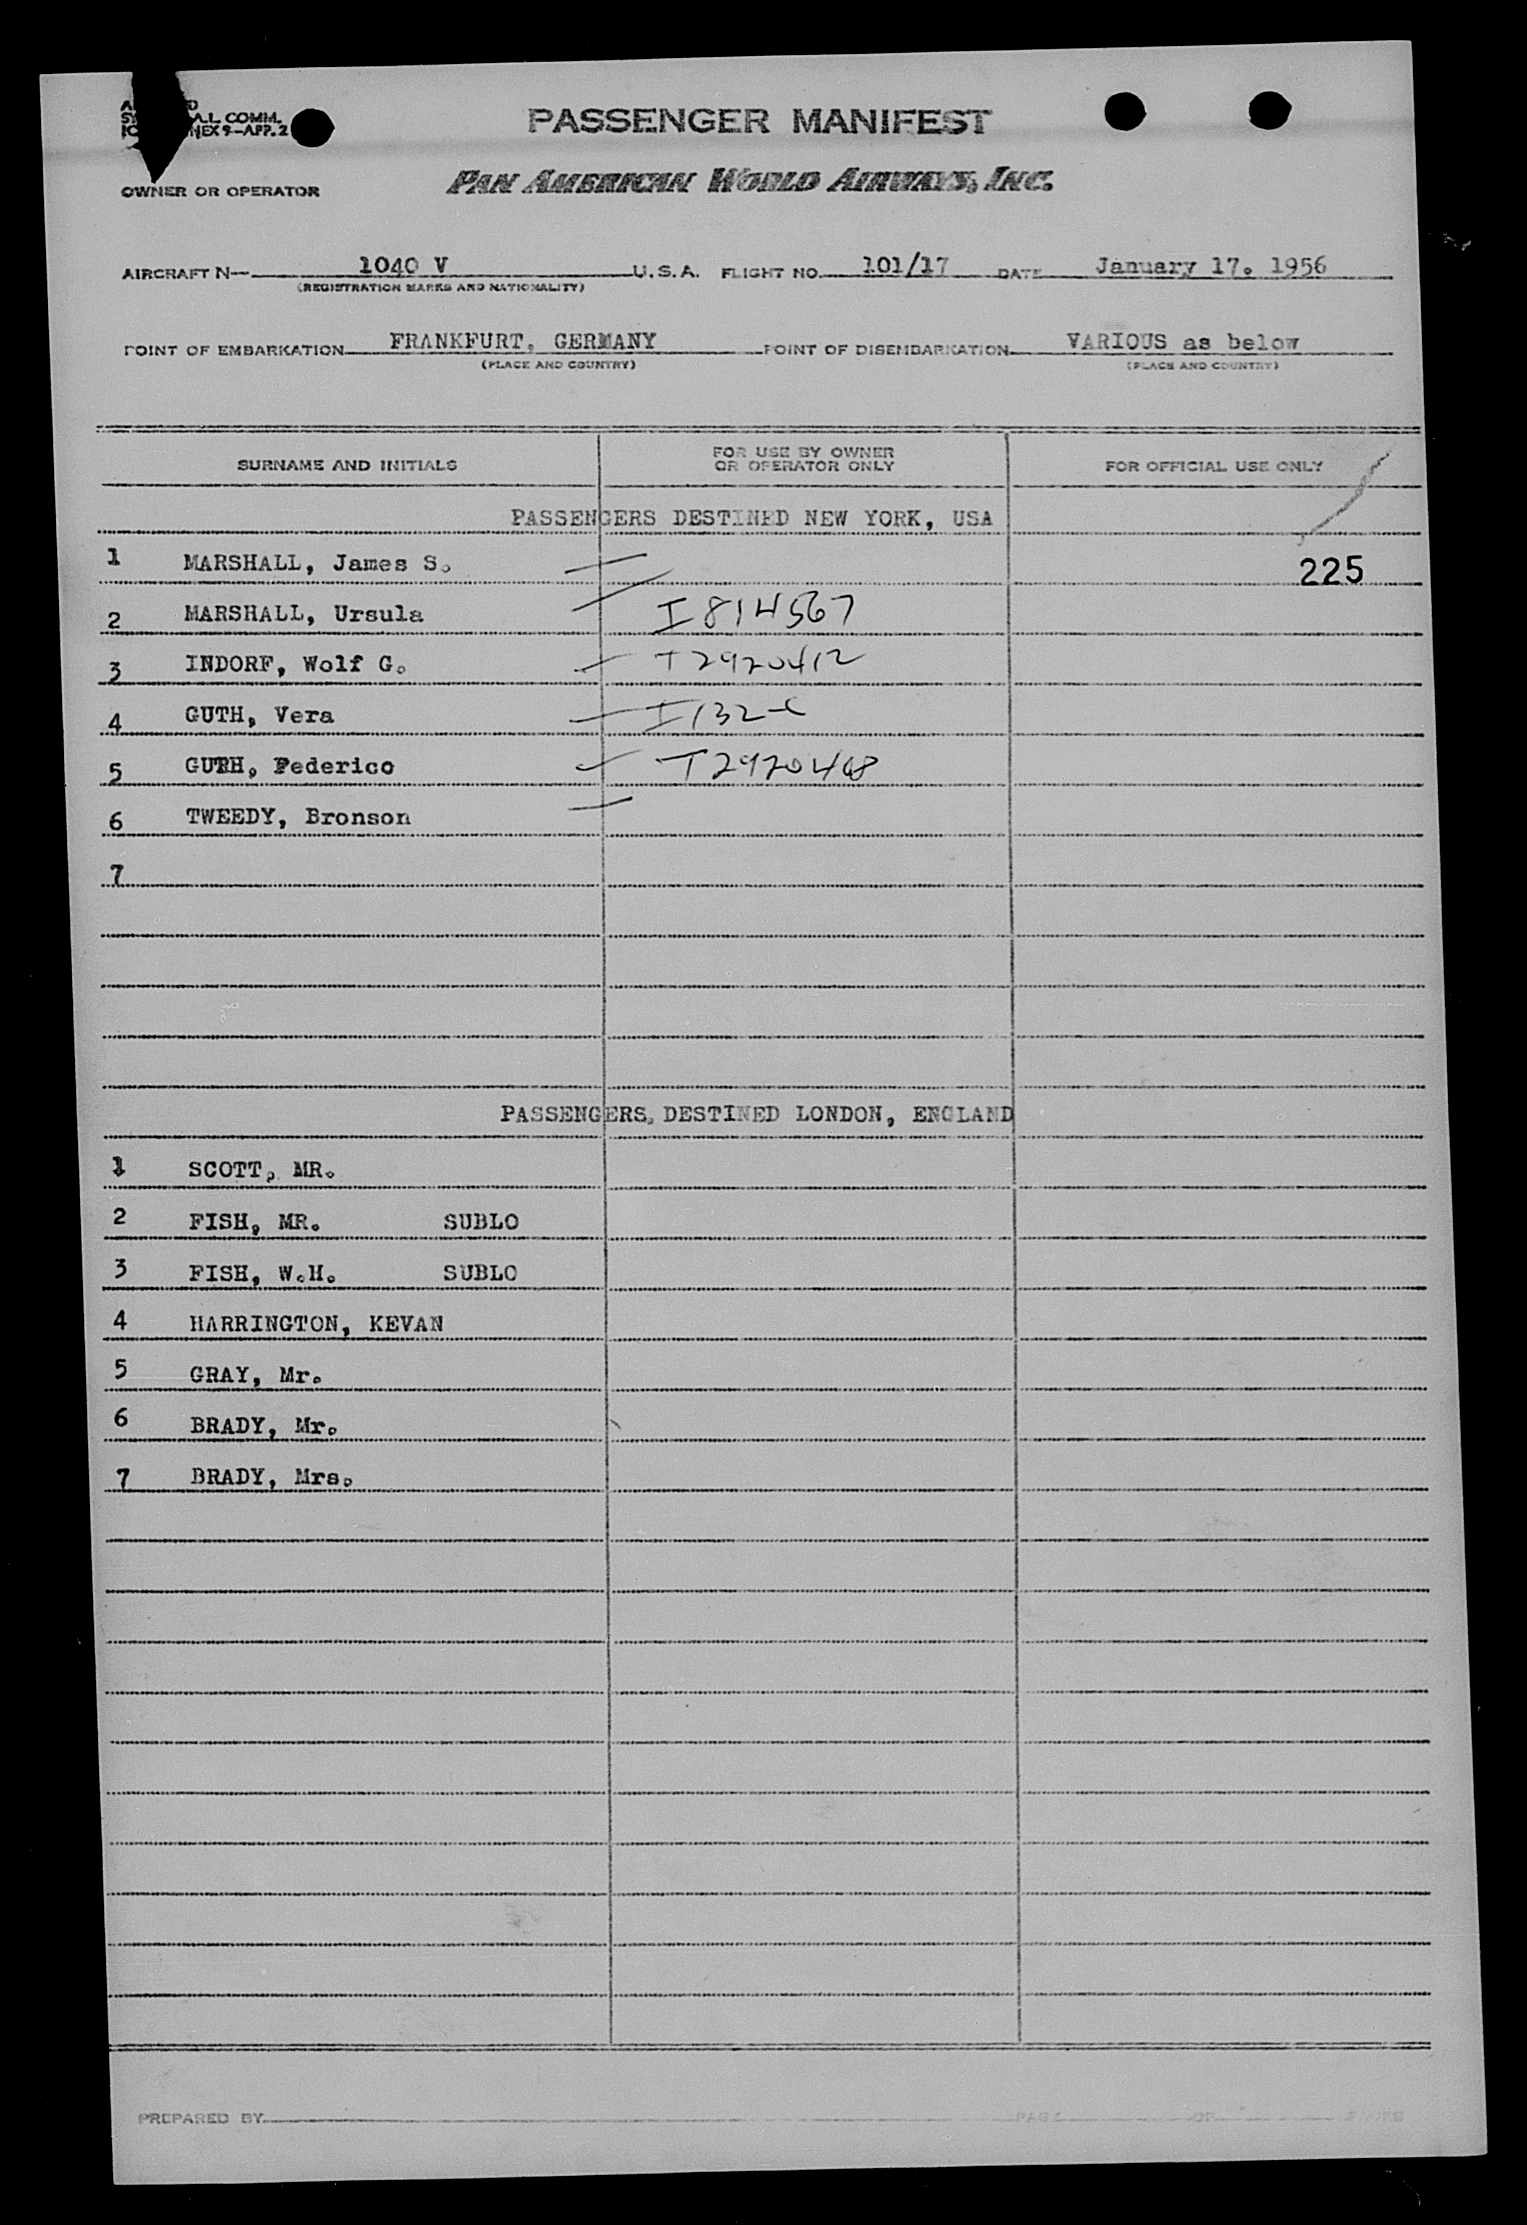 A.L. COMM.
NEX 9-APP. 2
PASSENGER MANIFEST
OWNER OR OPERATOR PAN AMERICAN WORLD AIRWAYS, INC.
AIRCRAFT N- 1040 V U.S.A. FLIGHT NO. 101/17 DATE January 17. 1956
(REGISTRATION MARKS AND NATIONALITY)
POINT OF EMBARKATION FRANKFURT, GERMANY POINT OF DISEMBARKATION VARIOUS as below
(PLACE AND COUNTRY) (PLACE AND COUNTRY)
SURNAME AND INITIALS FOR USE BY OWNER OR OPERATOR ONLY FOR OFFICIAL USE ONLY
PASSENGERS DESTINED NEW YORK, USA
1 MARSHALL, James S. 225
2 MARSHALL, Ursula I 814567
3 INDORF, Wolf G. T 2920412
4 GUTH, Vera I 132-C
5 GUTH, Federico T 2920408
6 TWEEDY, Bronson
7
PASSENGERS, DESTINED LONDON, ENGLAND
1 SCOTT, MR.
2 FISH, MR. SUBLO
3 FISH, W.H. SUBLO
4 HARRINGTON, KEVAN
5 GRAY, Mr.
6 BRADY, Mr.
7 BRADY, Mrs.
PREPARED BY PAGE OF